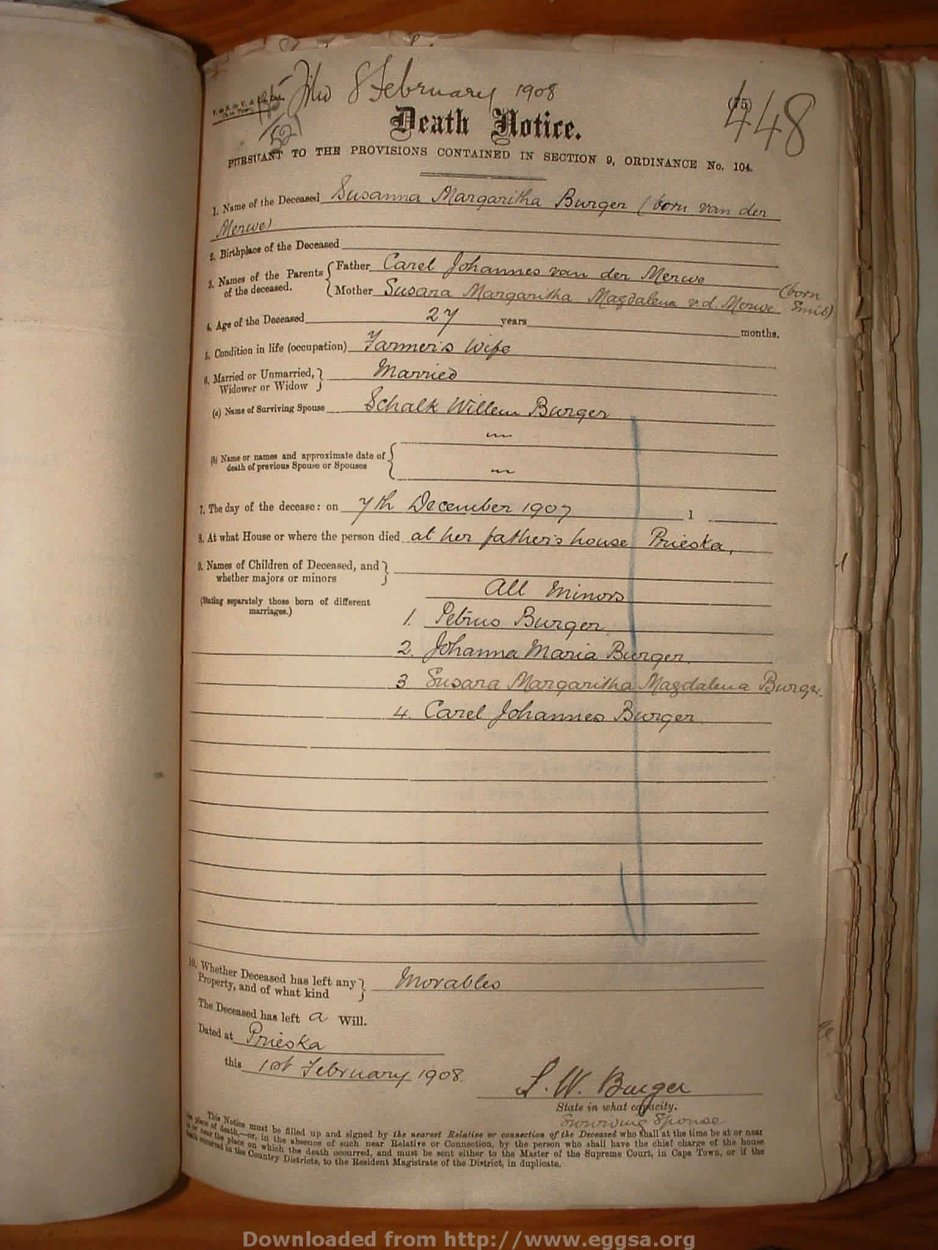 Filed 8 February 1908
(75)
448
Death Notice.
PURSUANT TO THE PROVISIONS CONTAINED IN SECTION 9, ORDINANCE No. 104.
1. Name of the Deceased Susanna Margaritha Burger (born van der
Merwe)
2. Birthplace of the Deceased
3. Names of the Parents of the deceased. { Father Carel Johannes van der Merwe
Mother Susara Margaritha Magdalena v.d. Merwe (born Smit)
4. Age of the Deceased 27 years months.
5. Condition in life (occupation) Farmer's Wife
6. Married or Unmarried, } Married
Widower or Widow
(a) Name of Surviving Spouse Schalk Willem Burger
(b) Name or names and approximate date of {
death of previous Spouse or Spouses
7. The day of the decease: on 7th December 1907 1
8. At what House or where the person died at her father's house Prieska,
9. Names of Children of Deceased, and }
whether majors or minors
All Minors
(Stating separately those born of different
marriages.)
1. Petrus Burger
2. Johanna Maria Burger.
3 Susara Margaritha Magdalena Burger
4. Carel Johannes Burger
10. Whether Deceased has left any } Movables
Property, and of what kind
The Deceased has left a Will.
Dated at Prieska
this 1st February 1908.
S. W. Burger
State in what capacity.
Surviving Spouse
This Notice must be filled up and signed by the nearest Relative or connection of the Deceased who shall at the time be at or near
place of death,—or, in the absence of such near Relative or Connection, by the person who shall have the chief charge of the house
or near the place on which the death occurred, and must be sent either to the Master of the Supreme Court, in Cape Town, or if the
death occurred in the Country Districts, to the Resident Magistrate of the District, in duplicate.
Downloaded from http://www.eggsa.org